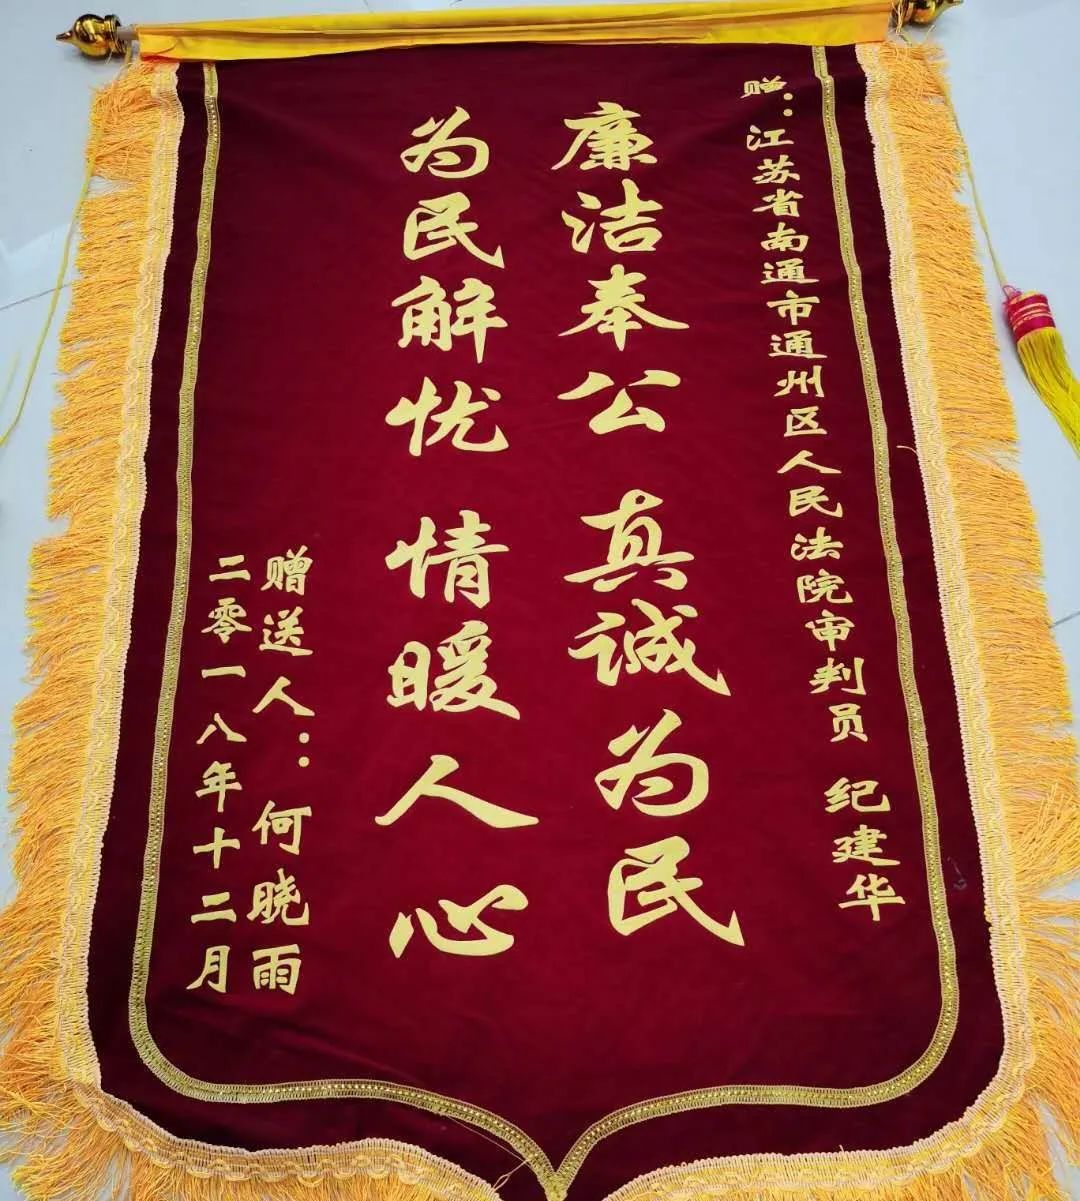 赠：江苏省南通市通州区人民法院审判员 纪建华
廉洁奉公 真诚为民
为民解忧 情暖人心
赠送人：何晓雨
二零一八年十二月